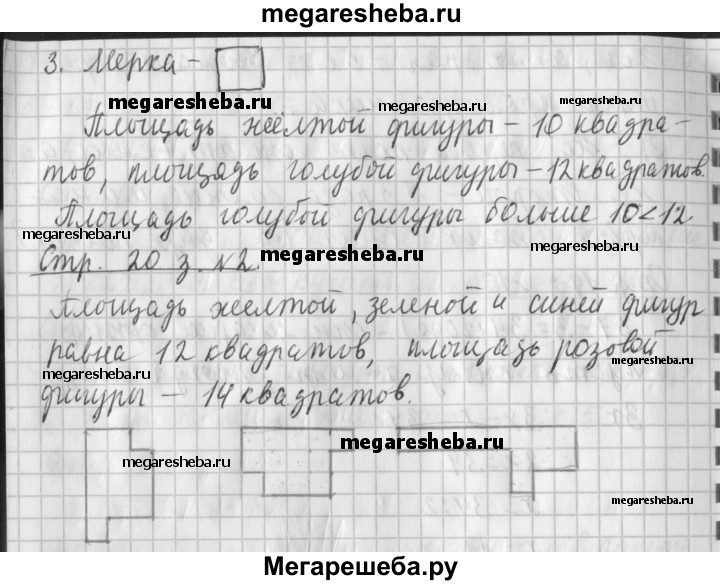 megaresheba.ru
3. Мерка –
megaresheba.ru megaresheba.ru megaresheba.ru
Площадь жёлтой фигуры – 10 квадра-
тов, площадь голубой фигуры – 12 квадратов.
Площадь голубой фигуры больше 10<12.
megaresheba.ru megaresheba.ru megaresheba.ru
Стр. 20 з. №2.
Площадь желтой, зеленой и синей фигур
равна 12 квадратов, площадь розовой
megaresheba.ru megaresheba.ru megaresheba.ru
фигуры – 14 квадратов.
megaresheba.ru megaresheba.ru megaresheba.ru
Мегарешеба.ру